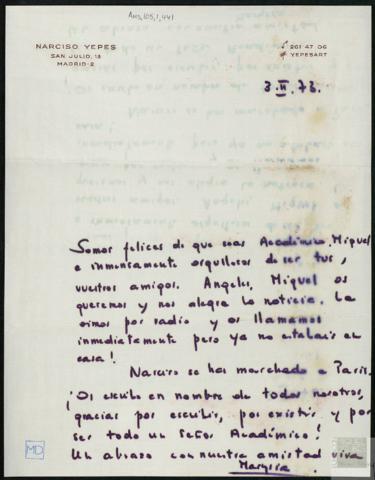 Ans,105,1,441
NARCISO YEPES
SAN JULIO, 13
MADRID-2
261 47 06
YEPESART
3.II.73.
Somos felices de que seas Académico, Miguel
e inmensamente orgullosos de ser tus,
vuestros amigos. Angeles, Miguel os
queremos y nos alegra la noticia. La
oimos por radio y os llamamos
inmediatamente pero ya no estabais en
casa!
Narciso se ha marchado a Paris.
¡Os escribo en nombre de todos nosotros,
gracias por escribir, por existir y por
ser todo un Señor Académico!
Un abrazo con nuestra amistad viva
Marysia
MD